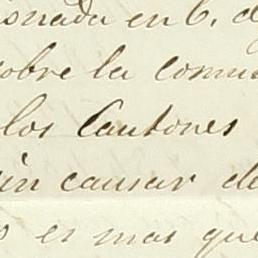 en 6.
sobre la
los Cantones
sin causar
es mas que